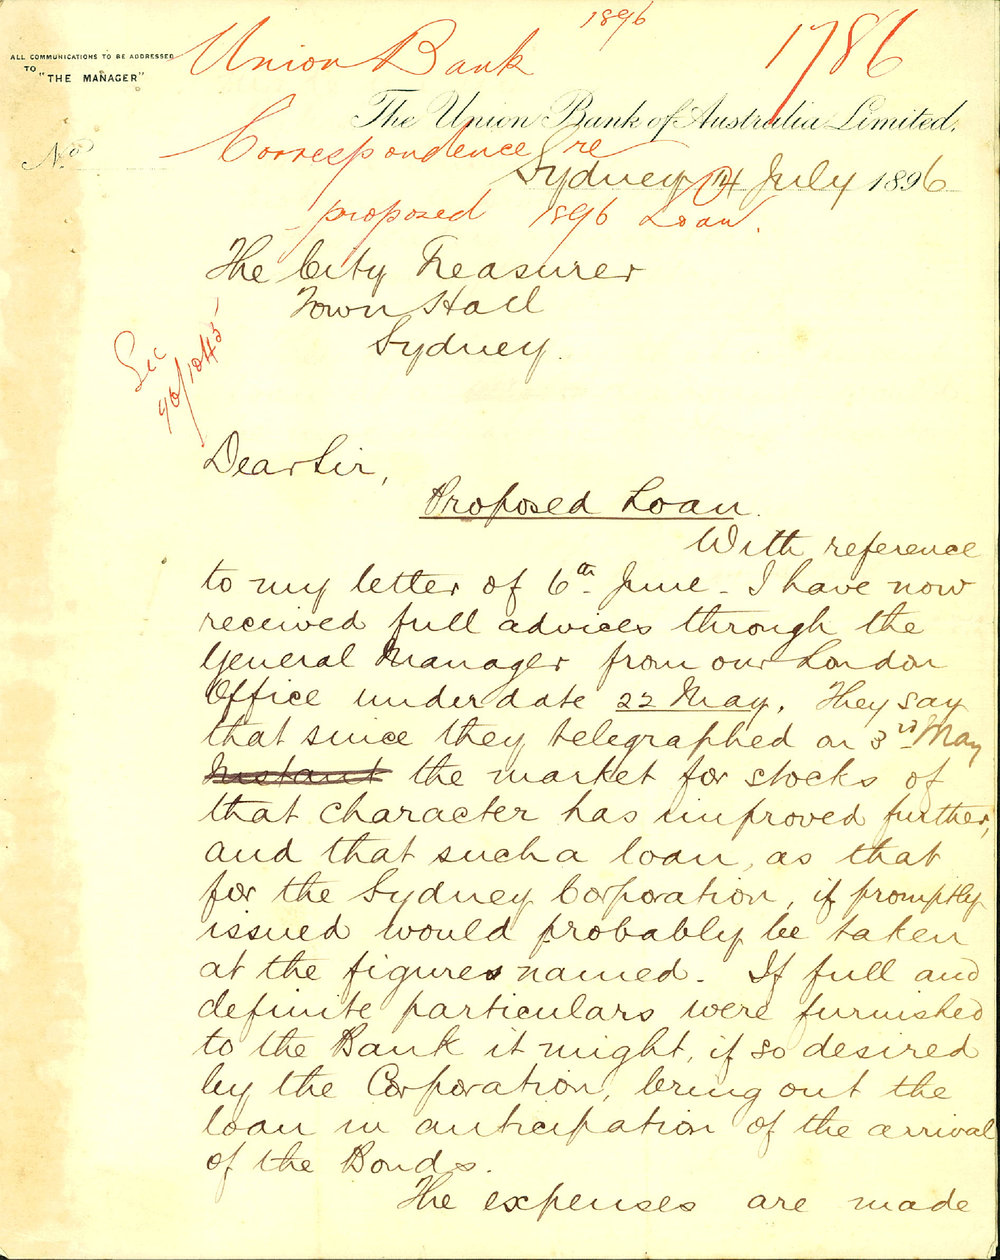 1896
1786
Union Bank
ALL COMMUNICATIONS TO BE ADDRESSED
TO
"THE MANAGER"
The Union Bank of Australia Limited.
Correspondence re
No
Sydney, 14 July 1896
proposed 1896 Loan.
The City Treasurer
Town Hall
Sydney.
Dear Sir,
Proposed Loan.
With reference
to my letter of 6th June - I have now
received full advices through the
General Manager from our London
Office under date 22 May. They say
that since they telegraphed on 3rd May
Instant the market for stocks of
that character has improved further,
and that such a loan, as that
for the Sydney Corporation, if promptly
issued would probably be taken
at the figures named. If full and
definite particulars were furnished
to the Bank it might, if so desired
by the Corporation, bring out the
loan in anticipation of the arrival
of the Bonds.
The expenses are made